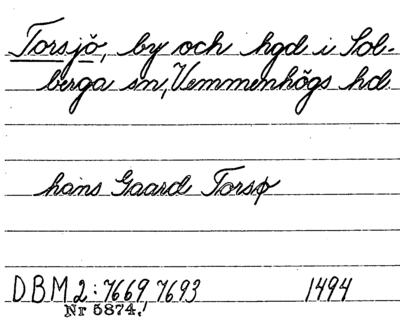 Torsjö, by och hgd i Sol-
berga sn, Vemmenhögs hd.
hans Gaard Torsø
DBM 2: 7669, 7693 1494
Nr 5874.